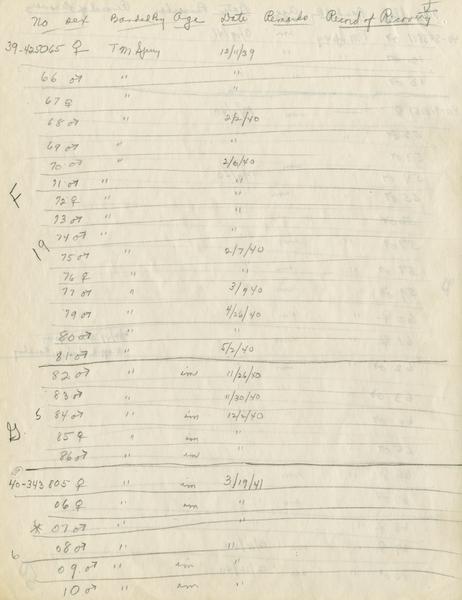 V
No Sex Banded by Age Date Remarks Record of Recovery
39-425065 ♀ T M 12/11/39
66 ♂ " "
67 ♀ " "
68 ♂ " 2/2/40
69 ♂ " "
70 ♂ " 2/6/40
71 ♂ " "
F 72 ♀ " "
73 ♂ " "
74 ♂ " "
19 75 ♂ " 2/7/40
76 ♀ " "
77 ♂ " 3/9/40
79 ♂ " 4/26/40
80 ♂ " "
81 ♂ " 5/2/40
82 ♂ " im 11/26/40
83 ♂ " 11/30/40
G 5 84 ♂ " im 12/2/40
85 ♀ " im "
86 ♂ " im "
40-343805 ♀ " im 3/19/41
06 ♀ " im "
* 07 ♂ " "
6 08 ♂ " "
09 ♂ " im "
10 ♂ " im "